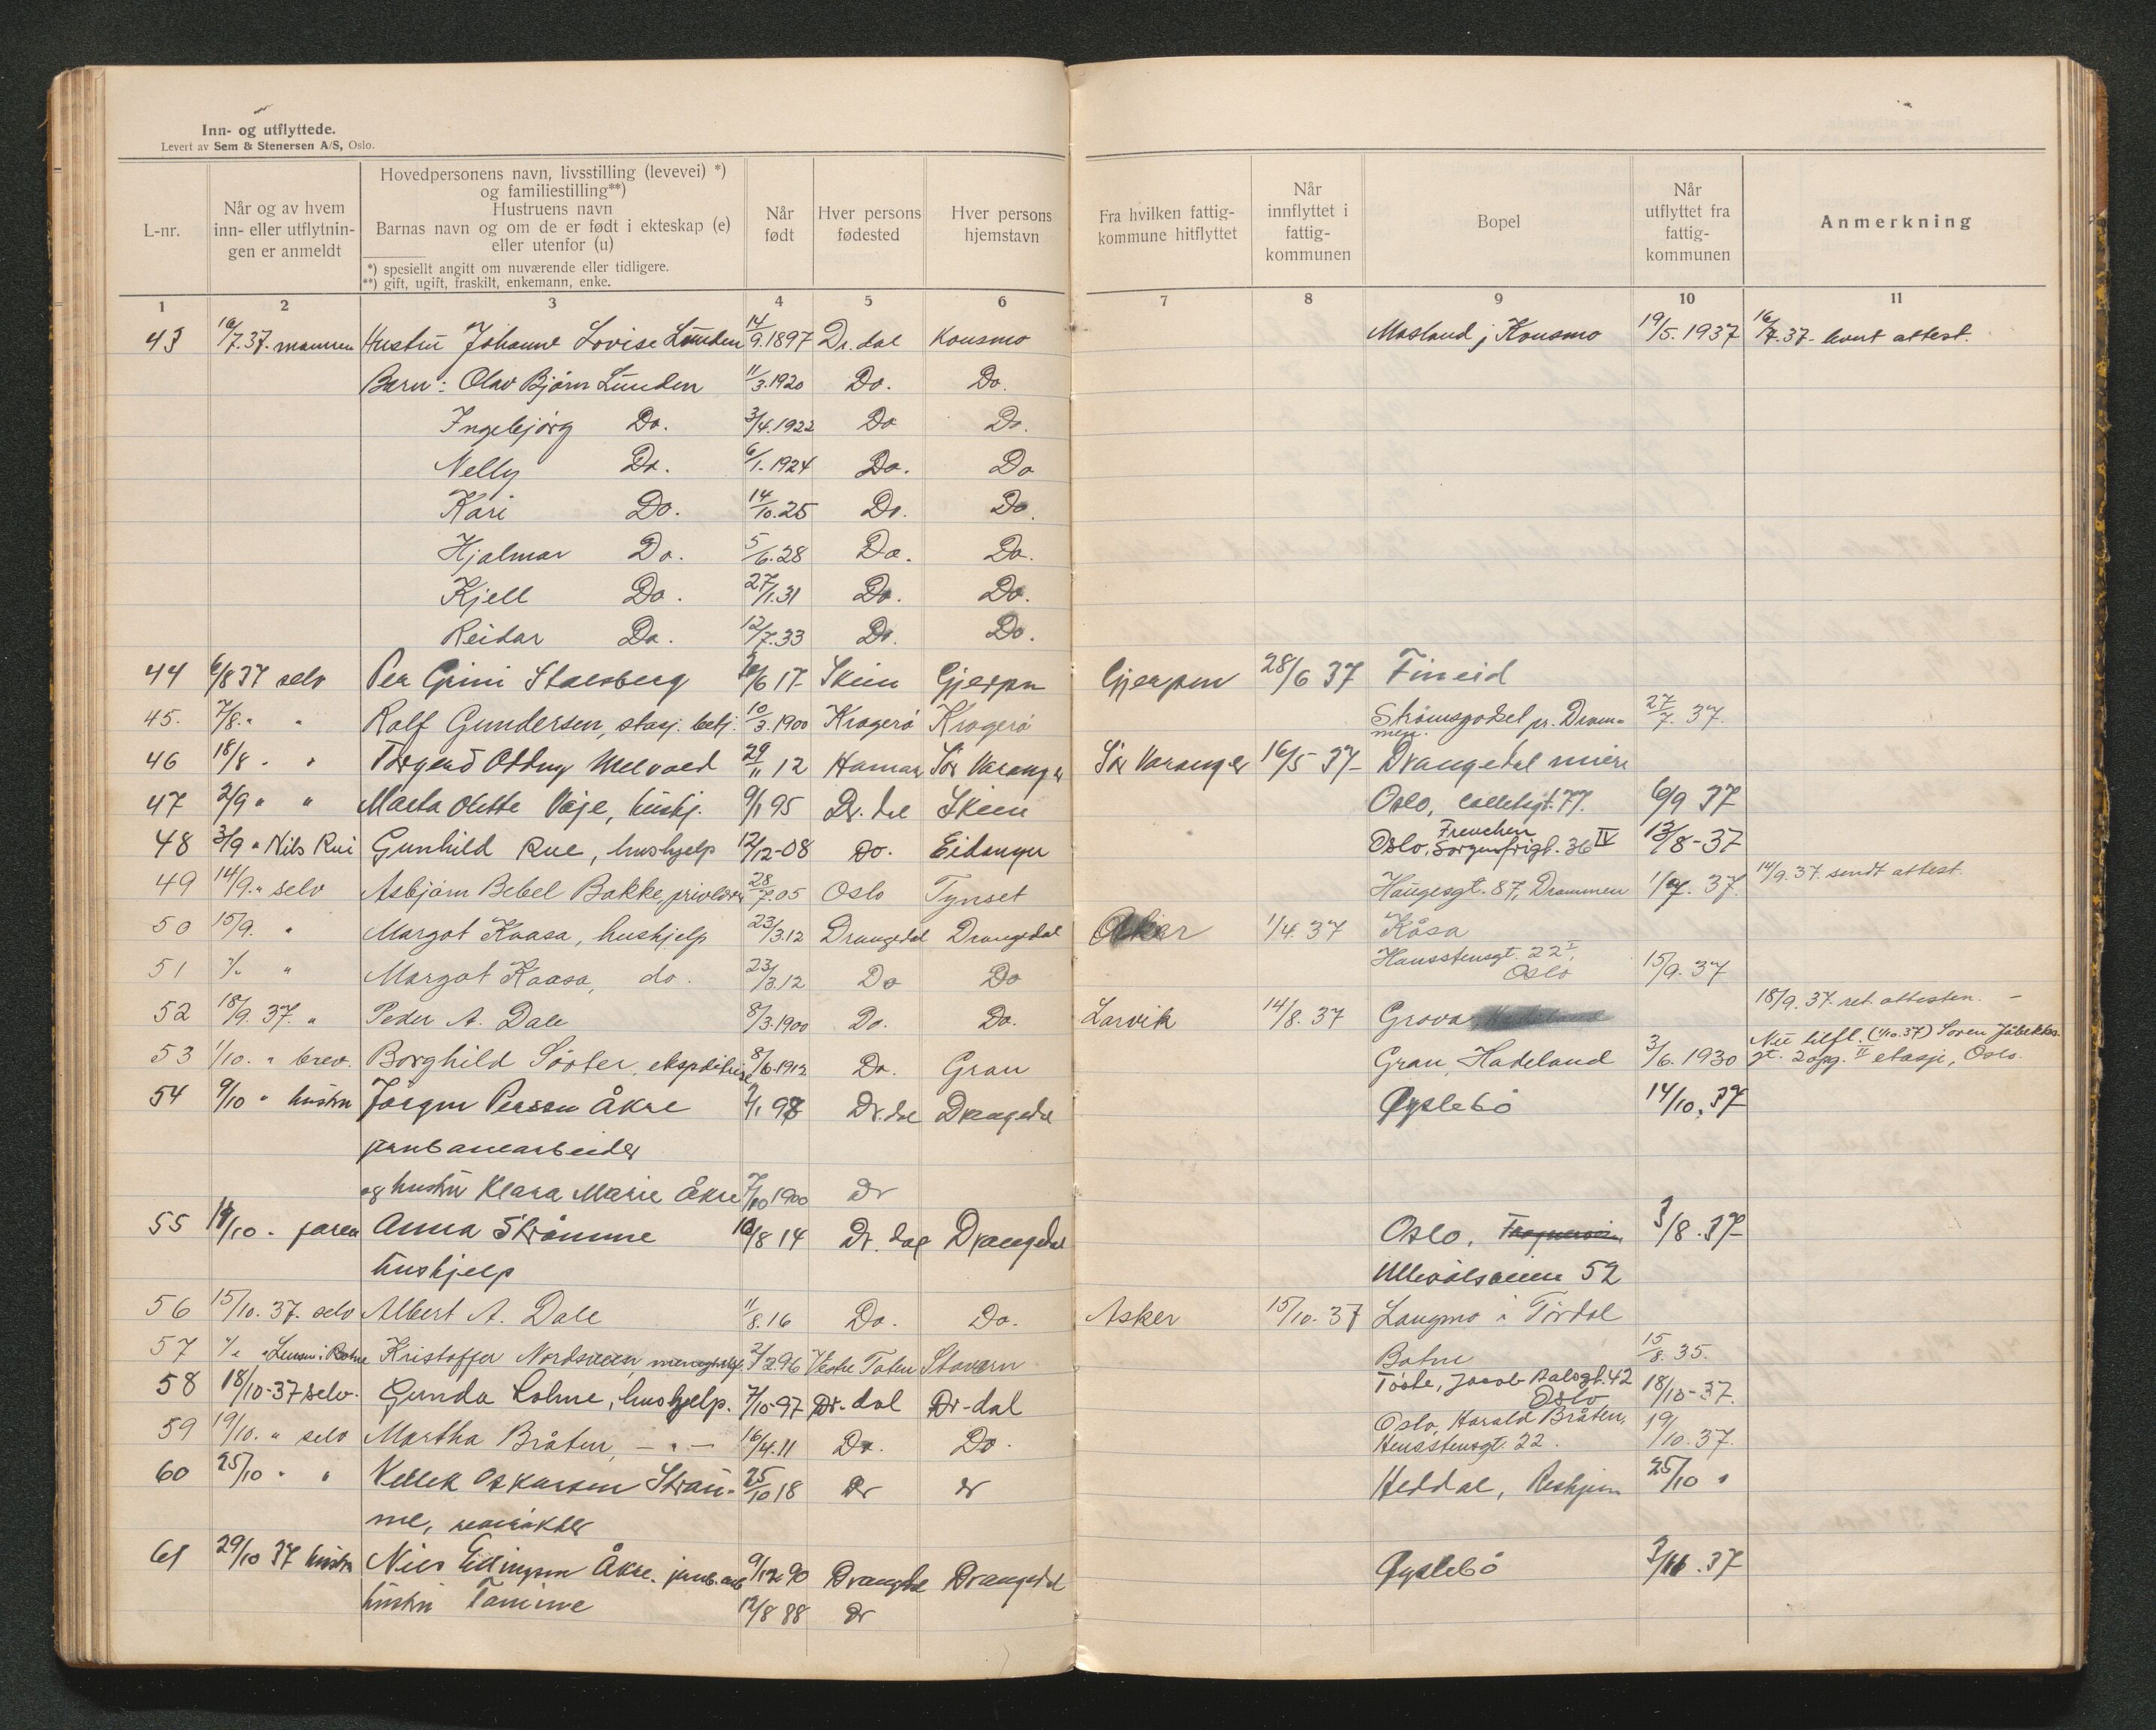 Inn- og utflyttede.
Levert av Sem & Stenersen A/S, Oslo.
L-nr.
Når og av hvem
inn- eller utflytnin-
gen er anmeldt
Hovedpersonens navn, livsstilling (levevei) *)
og familiestilling**)
Hustruens navn
Barnas navn og om de er født i ekteskap (e)
eller utenfor (u)
*) spesiellt angitt om nuværende eller tidligere.
**) gift, ugift, fraskilt, enkemann, enke.
Når
født
Hver persons
fødested
Hver persons
hjemstavn
Fra hvilken fattig-
kommune hitflyttet
Når
innflyttet i
fattig-
kommunen
Bopel
Når
utflyttet fra
fattig-
kommunen
Anmerkning
1 2 3 4 5 6 7 8 9 10 11
43 16/7.37. mannen Hustrü Johanne Lovise Lünden 14/9.1897 Dr.dal Konsmo Mosland j Konsmo 19/5.1937 16/7.37- levert attest.
Barn: Olav Bjørn Lünden 11/3.1920 Do. Do.
Ingebjörg Do. 3/4.1922 Do Do.
Nelly Do. 6/1.1924 Do. Do
Kari Do. 14/10.25 Do. Do.
Hjalmar Do. 5/6.28 Do. Do.
Kjell Do. 27/1.31 Do. Do.
Reidar Do. 12/7.33 Do. Do.
44 6/8 37 selv Per Grini Stensberg /6 17 Skien Gjerpn Gjerpen 28/6 37 Fineid
45. 7/8. " " Rolf Gundersen, stasj. betj. 10/3.1900 Kragerö Kragerö Strömsgodset pr. Dram-
men. 27/7. 37.
46 18/8 - " Torgerd Oddny Melvold 29/11 12 Hamar Sör Varanger Sör Varanger 16/5 37- Drangedal
47 2/9 " " Marta Olette Våje, hüshj. 9/1 95 Dr. dal Skien Oslo, 77. 6/9 37
48 3/9 " Nils Rui Gunhild Rue, hushjelp 12/12-08 Do. Eidanger Oslo, Sorgenfrigt. 36 IV 13/8-37
49 14/9. " selv Asbjörn Bebel Bakke, 28/7.05 Oslo Tynset Haugesgt. 87, Drammen 1/7. 37. 14/9.37. sendt attest.
50 15/9. " Margot Kaasa, hushjelp 23/3.12 Drangedal Drangedal Aker 1/4. 37 Kåsa
51 "/" " Margot Kaasa, do. 23/3.12 Do Do Hansstensgt. 22 I,
Oslo 15/9. 37
52 18/9. 37. " Peder A. Dale 8/3.1900 Do. Do. Larvik 14/8. 37 Grova 18/9.37. ret. attesten. -
53 1/10. " brev. Borghild Sörter, ekspeditrise 8/6.1912 Do. Gran Gran, Hadeland 3/6.1930 Nü tilfl. (1/10.37) Soren Jåbekks-
gt. 2 opg. II etasje, Oslo.
54 9/10 " hüstru Jörgen Persen Åkre 2/1 97 Dr.dal Drangedal Öyslebö 14/10.37
jernbanearbeider
og hustrü Klara Marie Åkre 7/10 1900 Dr
55 14/10 - faren Anna Strömme 10/8 14 Dr. dal Drangedal Oslo, 3/8.37-
hushjelp Ullevålsveien 52
56 15/10. 37. selv Albert A. Dale 11/8.16 Do. Do. Asker 15/10. 37 Langmo i Tördal
57 "/" " Lensm i Botne Kristoffer Nordsveen, 2/2.96 Vestre Toten Stavern Botne 15/8. 35.
58 18/10-37 selv. Gunda Holme, hushjelp. 7/10-97 Dr-dal Dr-dal Töste, Jacob Aalsgt. 42
Oslo 18/10-37.
59 19/10. " selv Martha Bråten, - " - 16/4.11 Do. Do. Oslo, Harald Bråten,
Hensstensgt. 22. 19/10.37.
60 25/10 " " Oskarsen Ström- 25/10 18 Dr Dr Heddal, 25/10 "
me,
61 29/10 37 hüstru Nils Ellingsen Åkre. jernb. arb 9/12 90 Drangedal Drangedal Öyslebö 3/11.37
hüstru Tomine 12/8 88 Dr